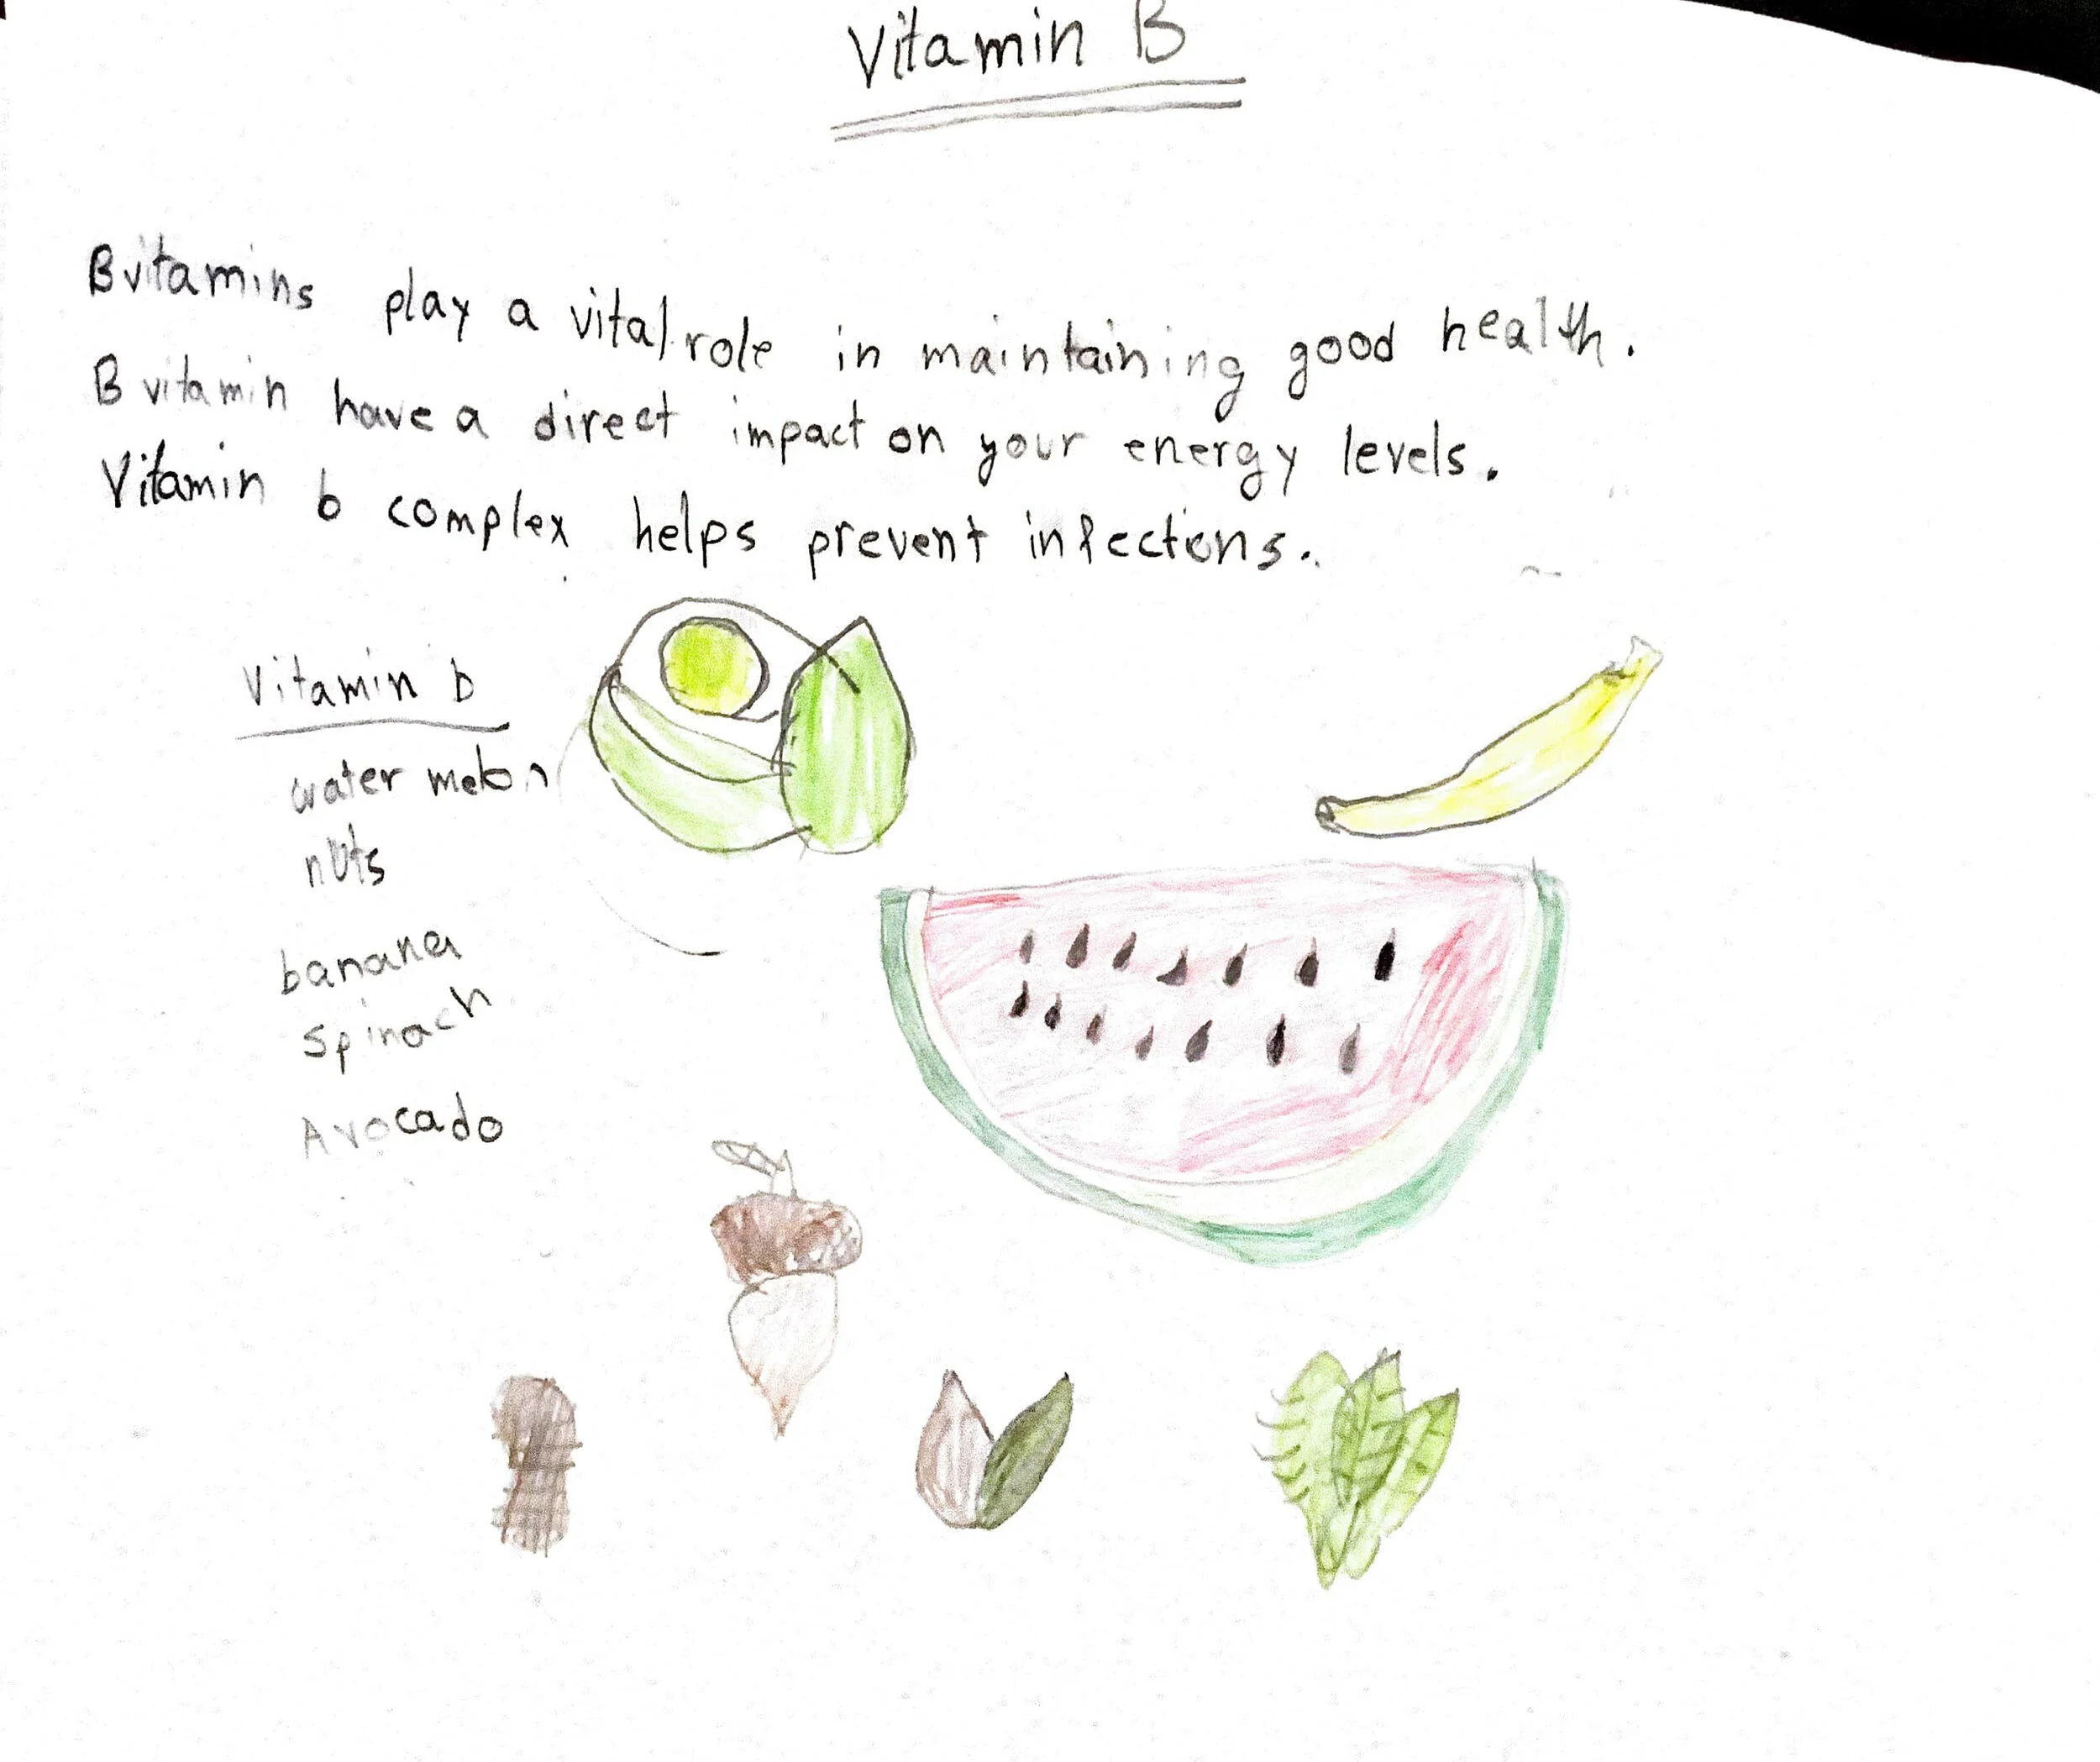 Vitamin B
B vitamins play a vital role in maintaining good health.
B vitamin have a direct impact on your energy levels.
Vitamin b complex helps prevent infections.
Vitamin b
water melon
nuts
banana
spinach
Avocado